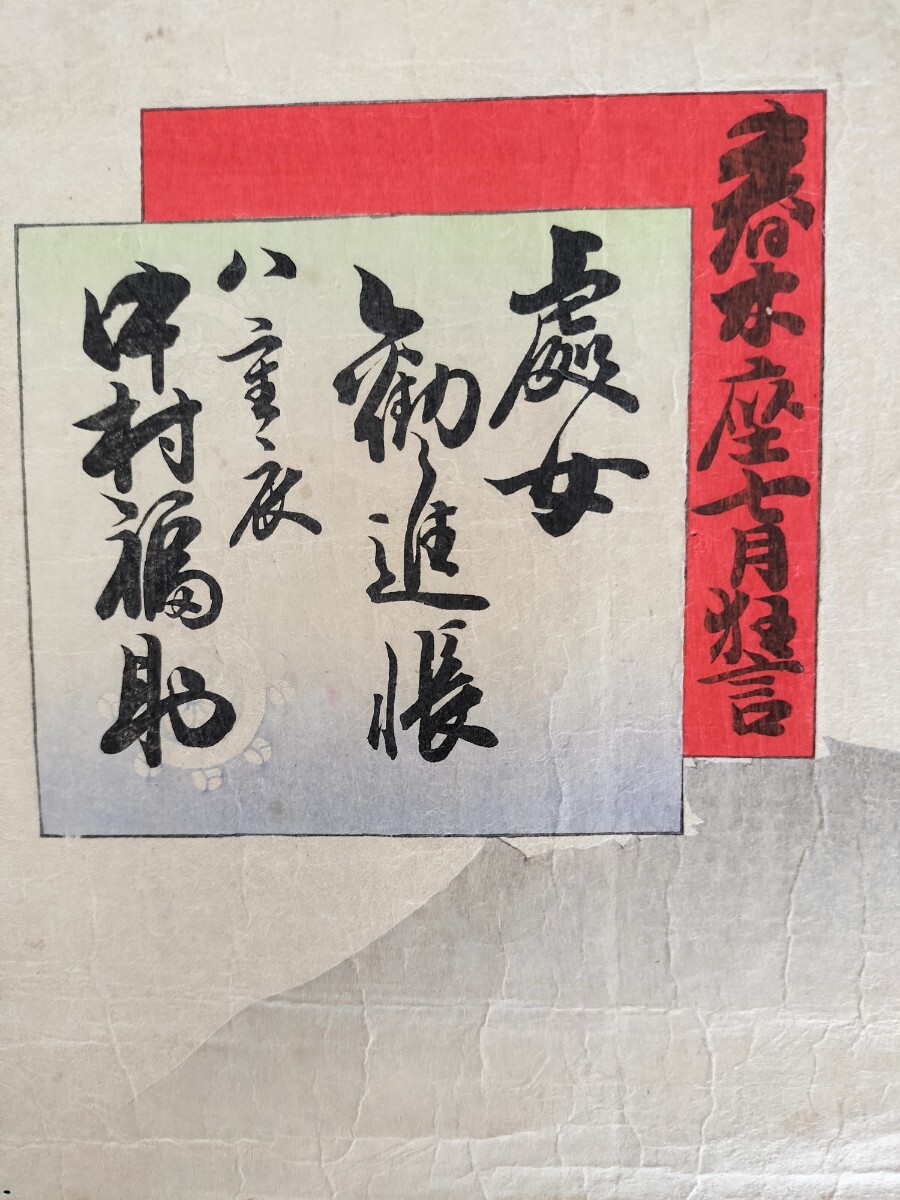 春木座七月狂言
處女
勧進帳
八重辰
中村福助